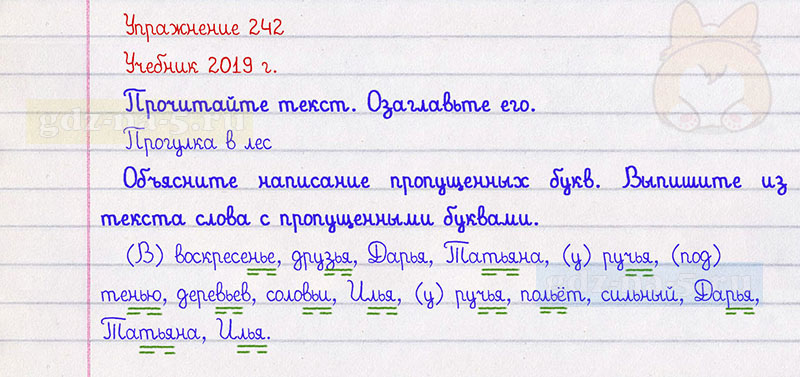 Упражнение 242
Учебник 2019 г.
Прочитайте текст. Озаглавьте его.
Прогулка в лес
Объясните написание пропущенных букв. Выпишите из
текста слова с пропущенными буквами.
(В) воскресенье, друзья, Дарья, Татьяна, (у) ручья, (под)
тенью, деревьев, соловьи, Илья, (у) ручья, польёт, сильный, Дарья,
Татьяна, Илья.